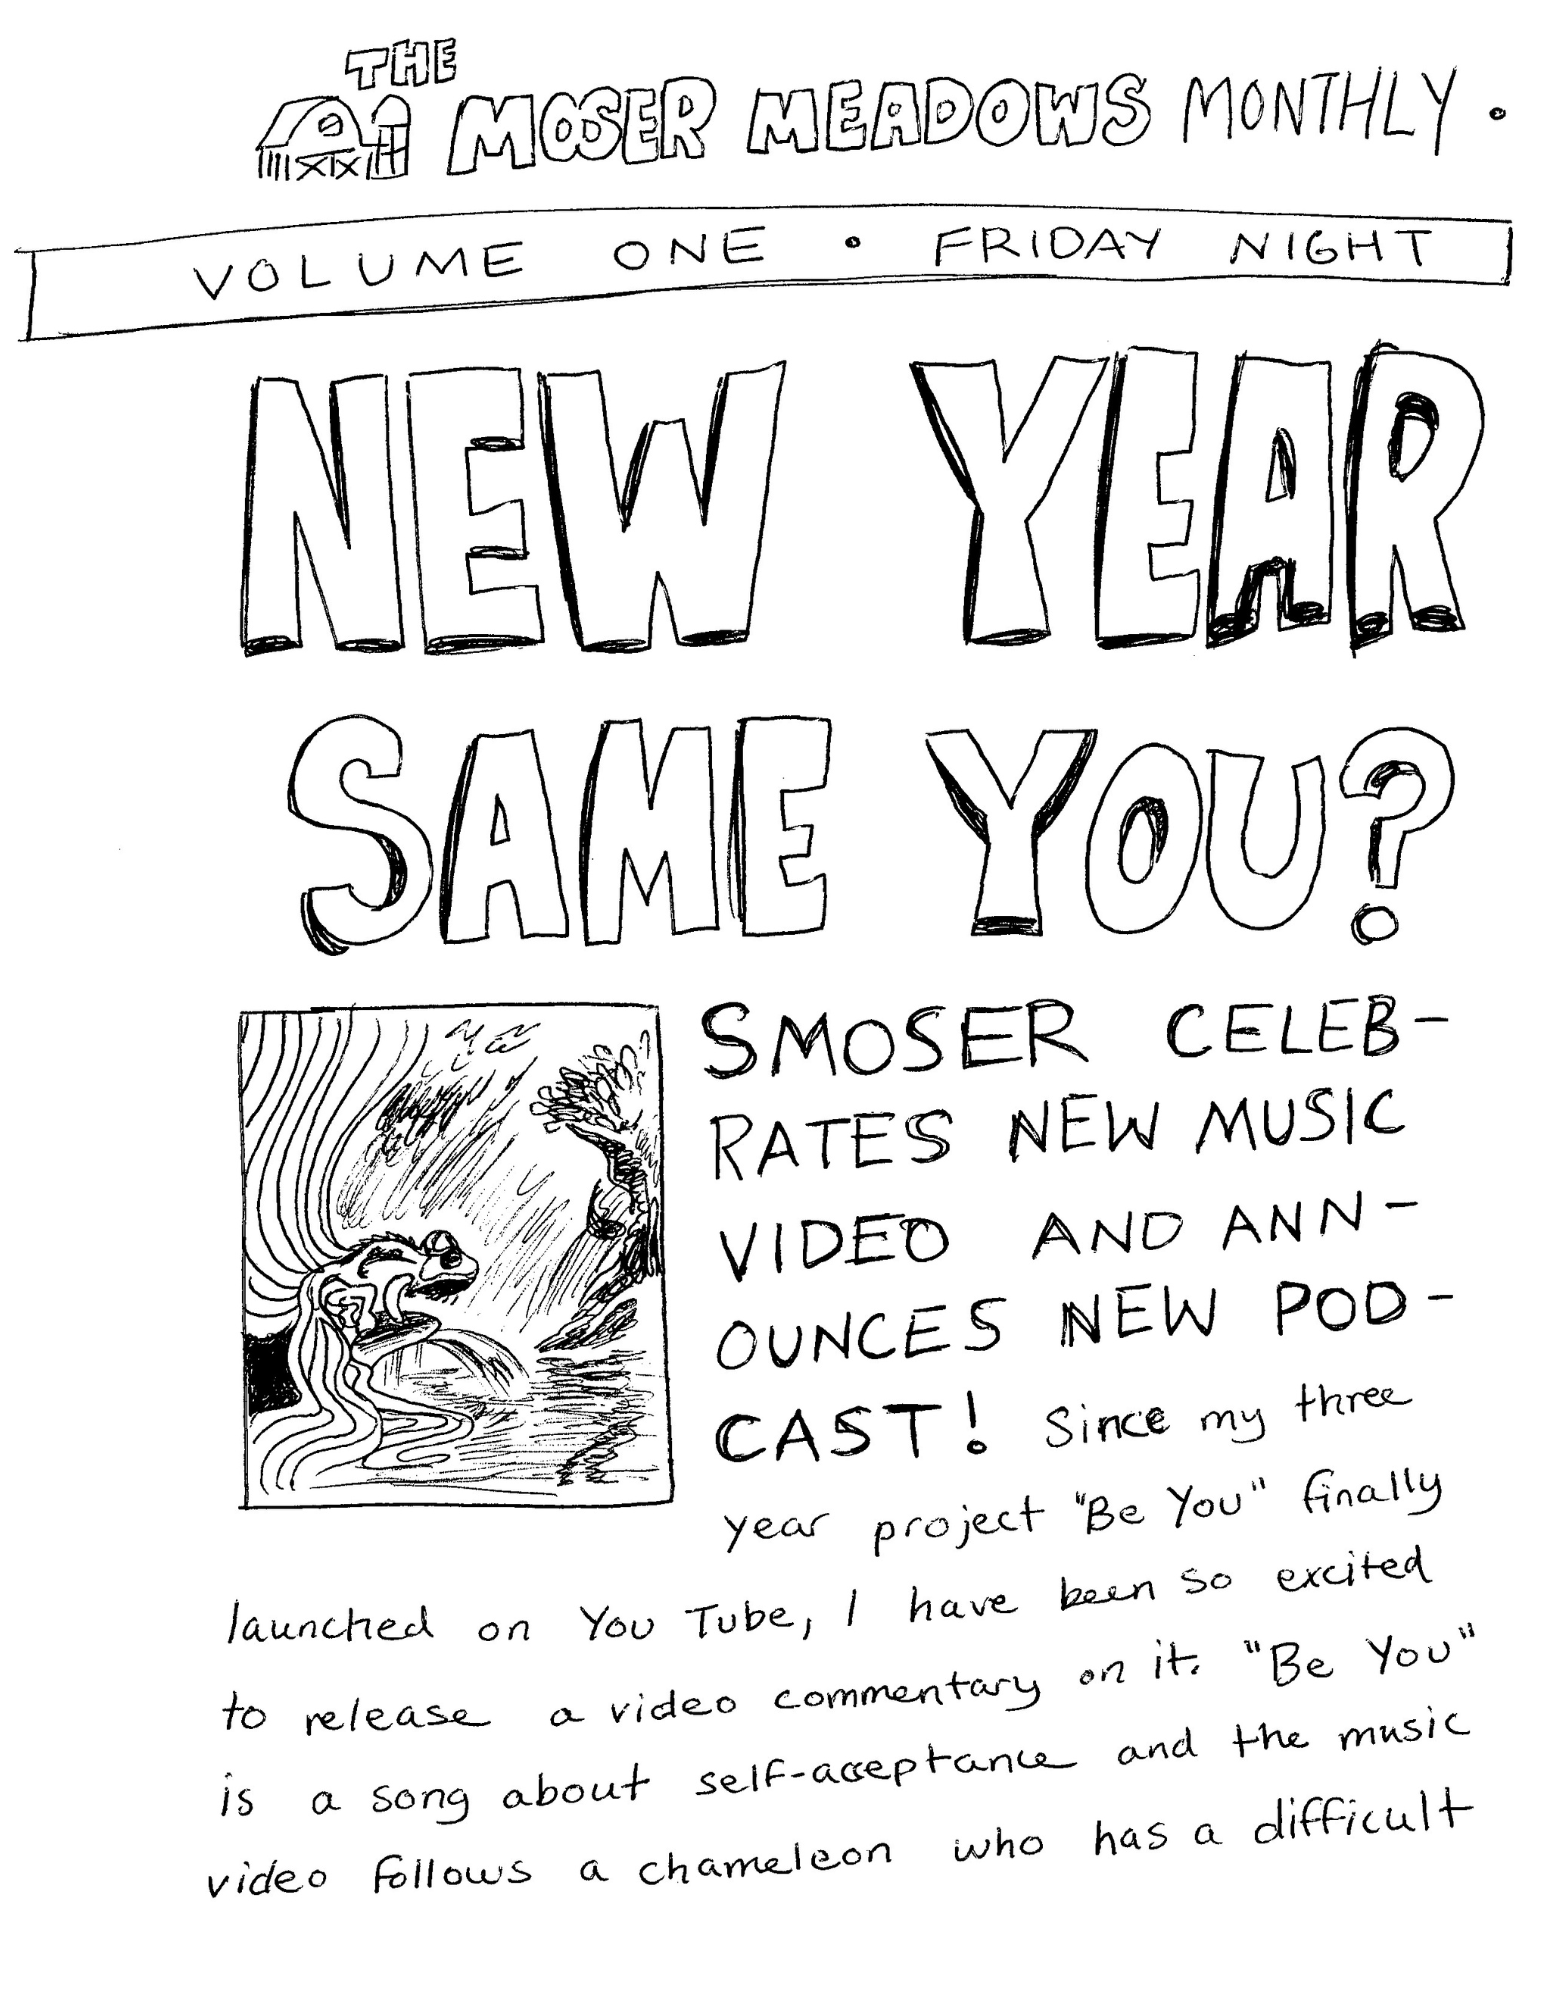 THE
MOSER MEADOWS MONTHLY.
VOLUME ONE • FRIDAY NIGHT
NEW YEAR
SAME YOU?
SMOSER CELEB-
RATES NEW MUSIC
VIDEO AND ANN-
OUNCES NEW POD-
CAST! Since my three
year project "Be You" finally
launched on You Tube, I have been so excited
to release a video commentary on it. "Be You"
is a song about self-acceptance and the music
video follows a chameleon who has a difficult